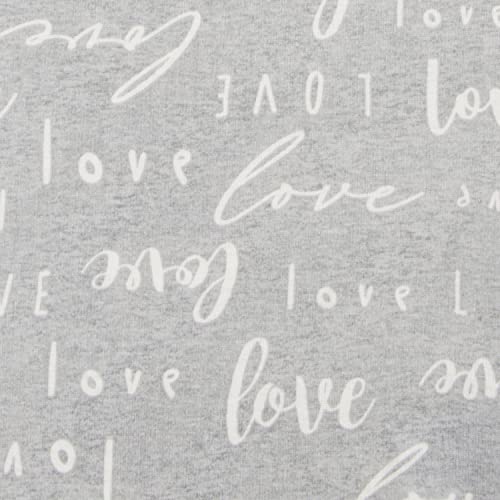 love
love
LOVE
lov
love
love
VE
love
love
L
love
love
lov